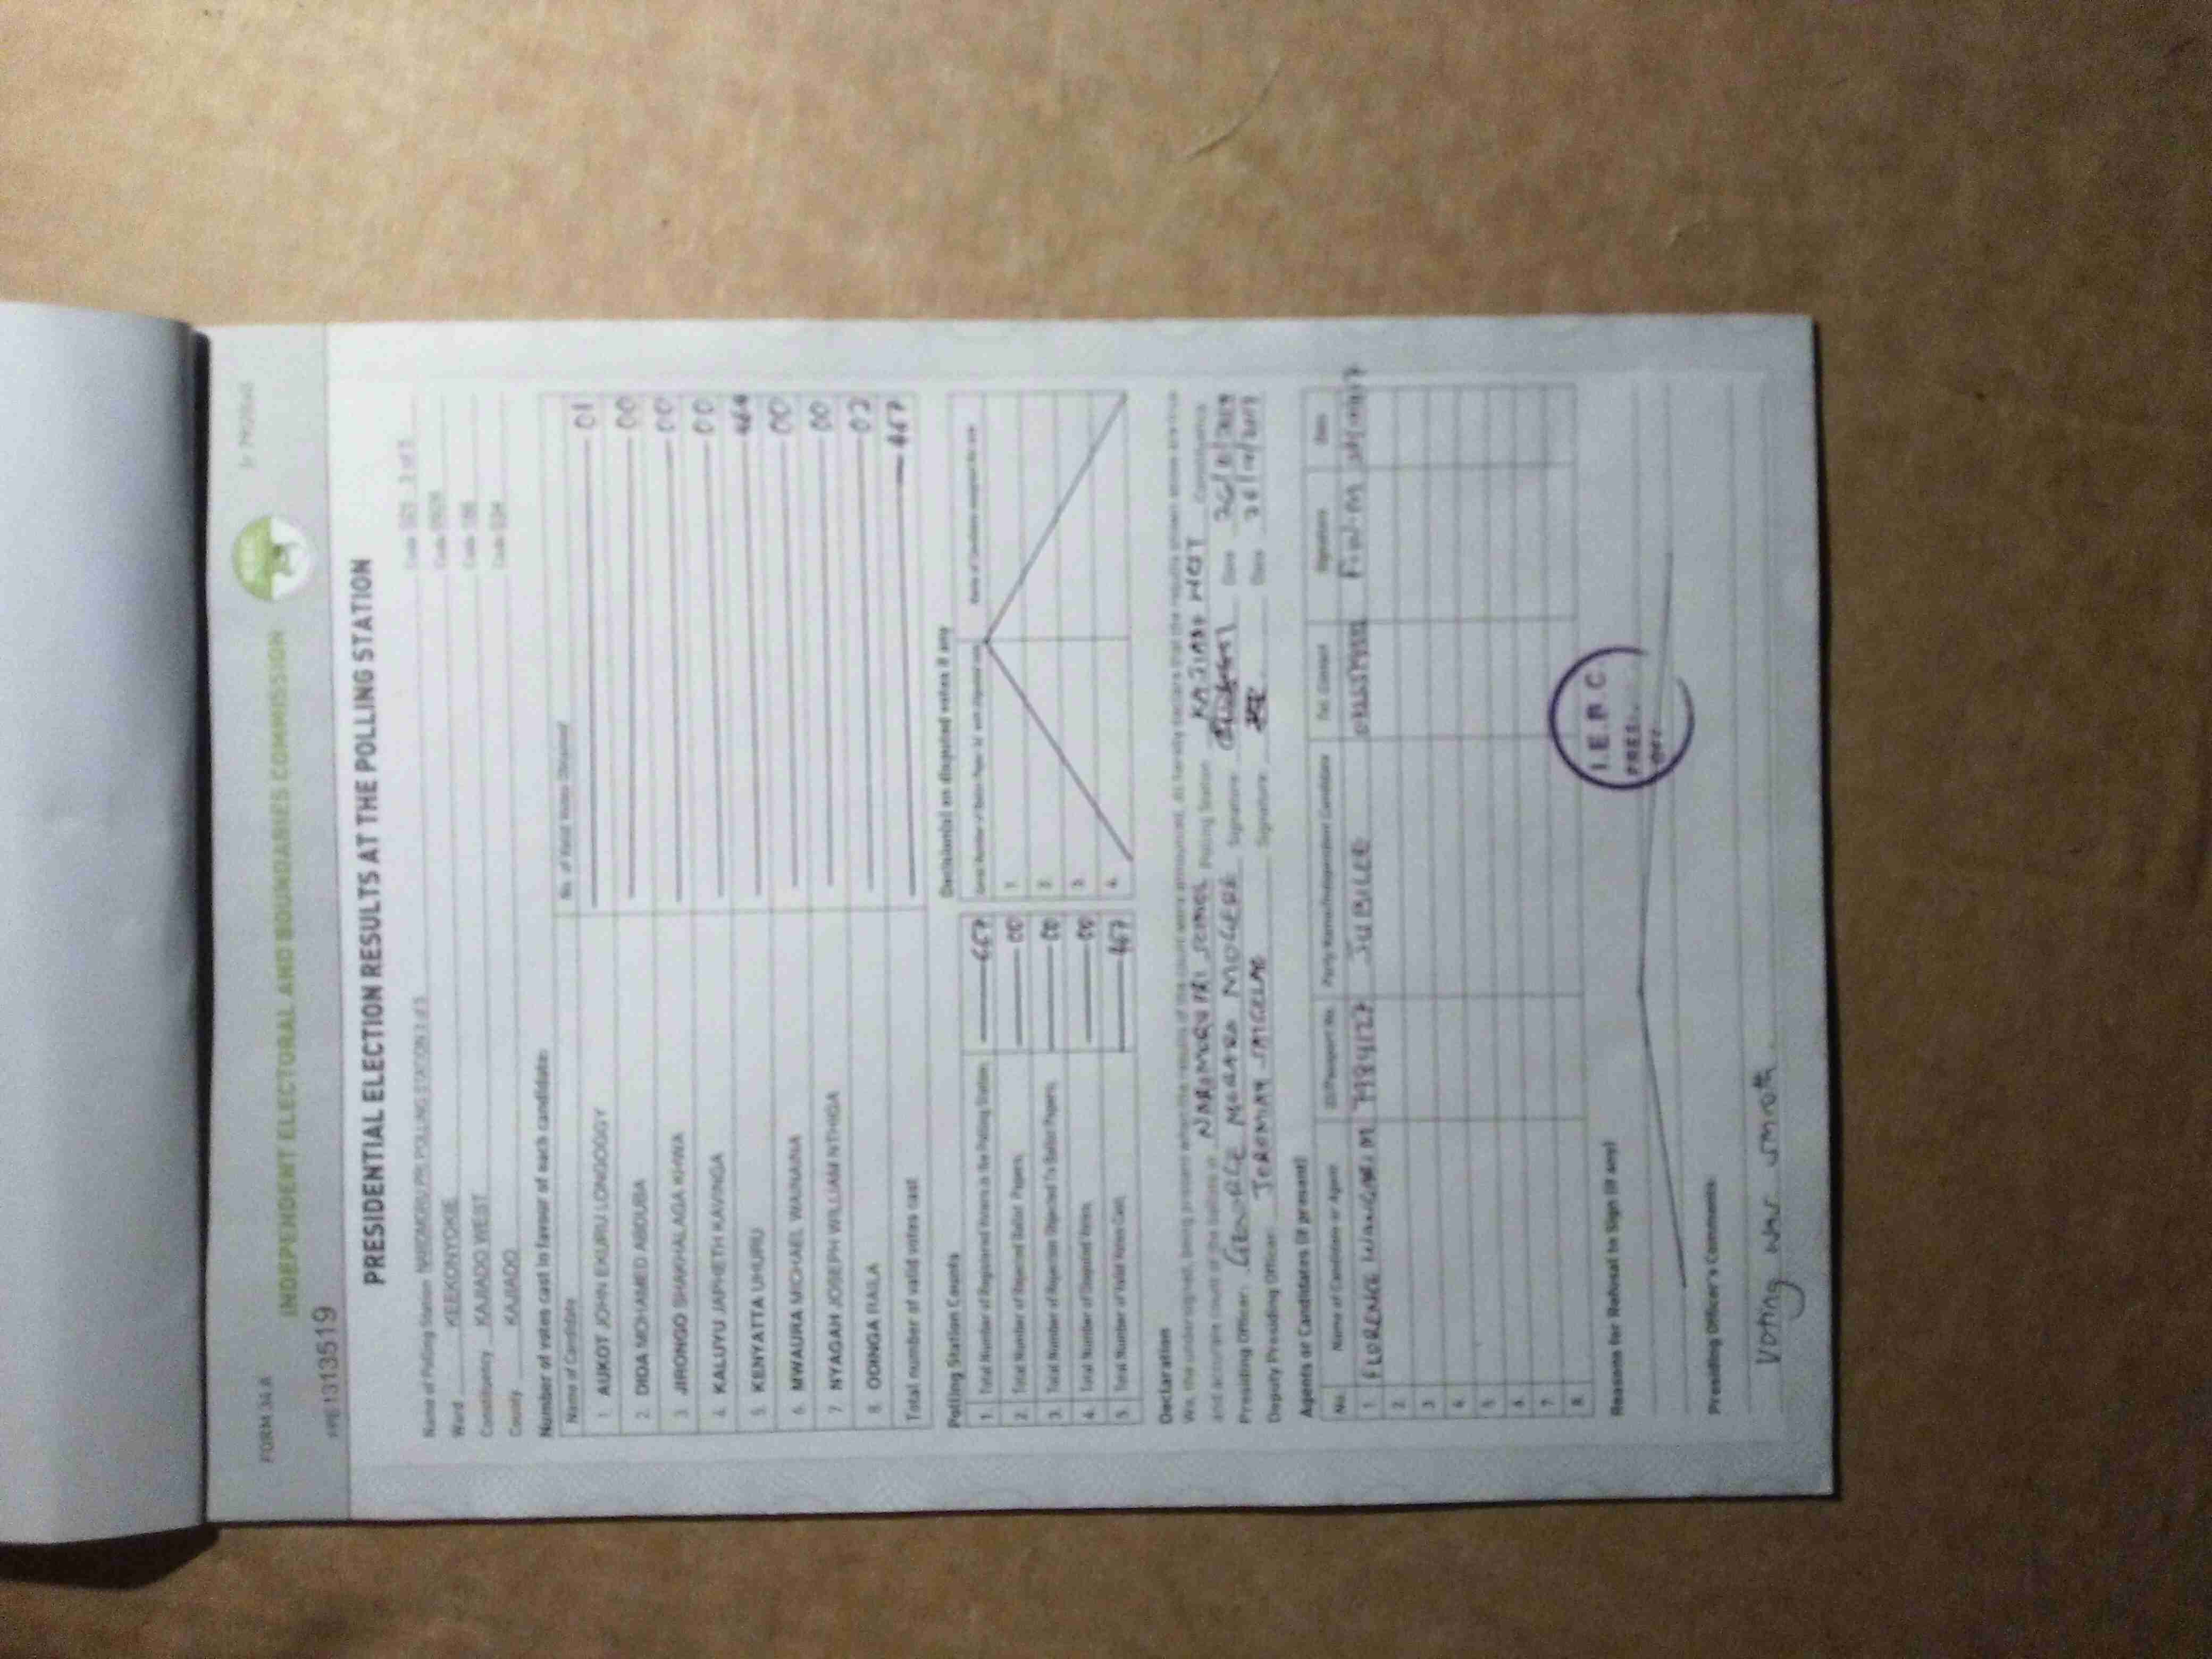 FORM 34 A
INDEPENDENT ELECTORAL AND BOUNDARIES COMMISSION
13113519
PRESIDENTIAL ELECTION RESULTS AT THE POLLING STATION
Name of Polling Station NAROMORU PRI POLLING STATION
Ward KEEKONYOKIE
Constituency KAJIADO WEST
County KAJIADO Code 034
Number of votes cast in favour of each candidate:
Name of Candidate No. of Valid Votes Obtained
1. AUKOT JOHN EKURU LONGOGGY 01
2. DIDA MOHAMED ABDUBA 00
3. JIRONGO SHAKHALAGA KHWA 00
4. KALUYU JAPHETH KAVINGA 00
5. KENYATTA UHURU 464
6. MWAURA MICHAEL WAINAINA 00
7. NYAGAH JOSEPH WILLIAM NTHIGA 00
8. ODINGA RAILA 02
Total number of valid votes cast 467
Polling Station Counts
1. Total Number of Registered Voters in the Polling Station
2. Total Number of Rejected Ballot Papers 00
3. Total Number of Rejection Objected To Ballot Papers 00
4. Total Number of Disputed Votes 00
5. Total Number of Valid Votes Cast 467
Decision(s) on disputed votes if any
1.
2.
3.
4.
Declaration
We, the undersigned, being present when the results of the count were announced, do hereby declare that the results shown above are true
and accurate count of the ballots in NAROMORU PRI SCHOOL Polling Station KAJIADO WEST Constituency
Presiding Officer: GEORGE Signature Date 26/10/2017
Deputy Presiding Officer: JEREMIAH Signature Date 26/10/2017
Agents or Candidates (if present)
No. Name of Candidate or Agent ID/Passport No. Party Name/Independent Candidate Tel. Contact Signature Date
1. FLORENCE WANGARI M JUBILEE
2.
3.
4.
5.
6.
7.
8.
I.E.B.C.
PRES.
OFF
Reasons for Refusal to Sign (if any)
Presiding Officer's Comments:
Voting was smooth.